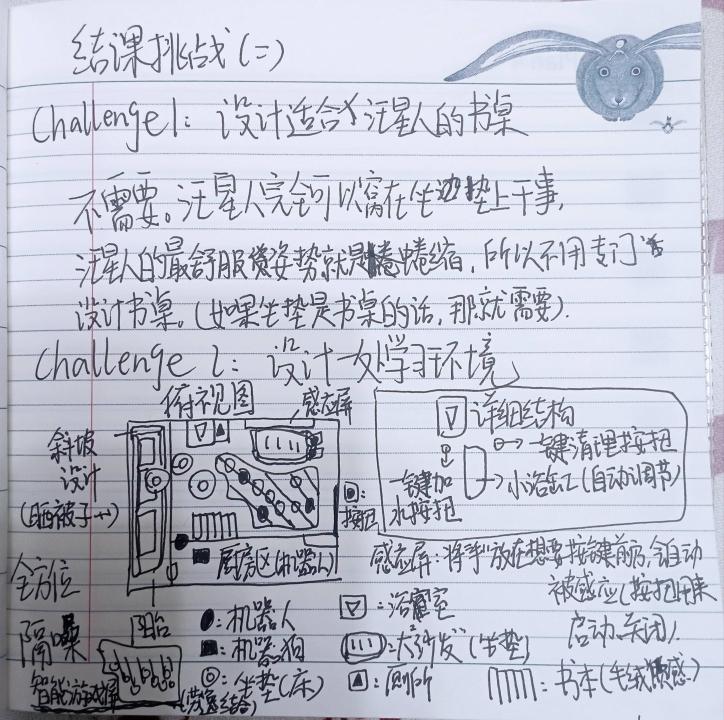 结课挑战(二)
Challenge1: 设计适合汪星人的书桌
不需要。汪星人完全可以窝在坐垫上干事,
汪星人的最舒服姿势就是蜷缩,所以不用专门
设计书桌。(如果坐垫是书桌的话,那就需要).
Challenge 2: 设计一处学习环境
俯视图
感应屏
斜坡
设计
(晒被子→)
按钮
厨房区(机器人)
阳台
全方位
隔噪
智能游戏
详细结构
一键清理按钮
小浴缸(自动调节)
一键加
水按钮
感应屏:将手放在想要按键前方,会自动
被感应(按钮用来
启动、关闭).
:机器人
:机器狗
:坐垫(床)
:浴室
:大沙发(坐垫)
:厕所
:书本(毛绒质感)